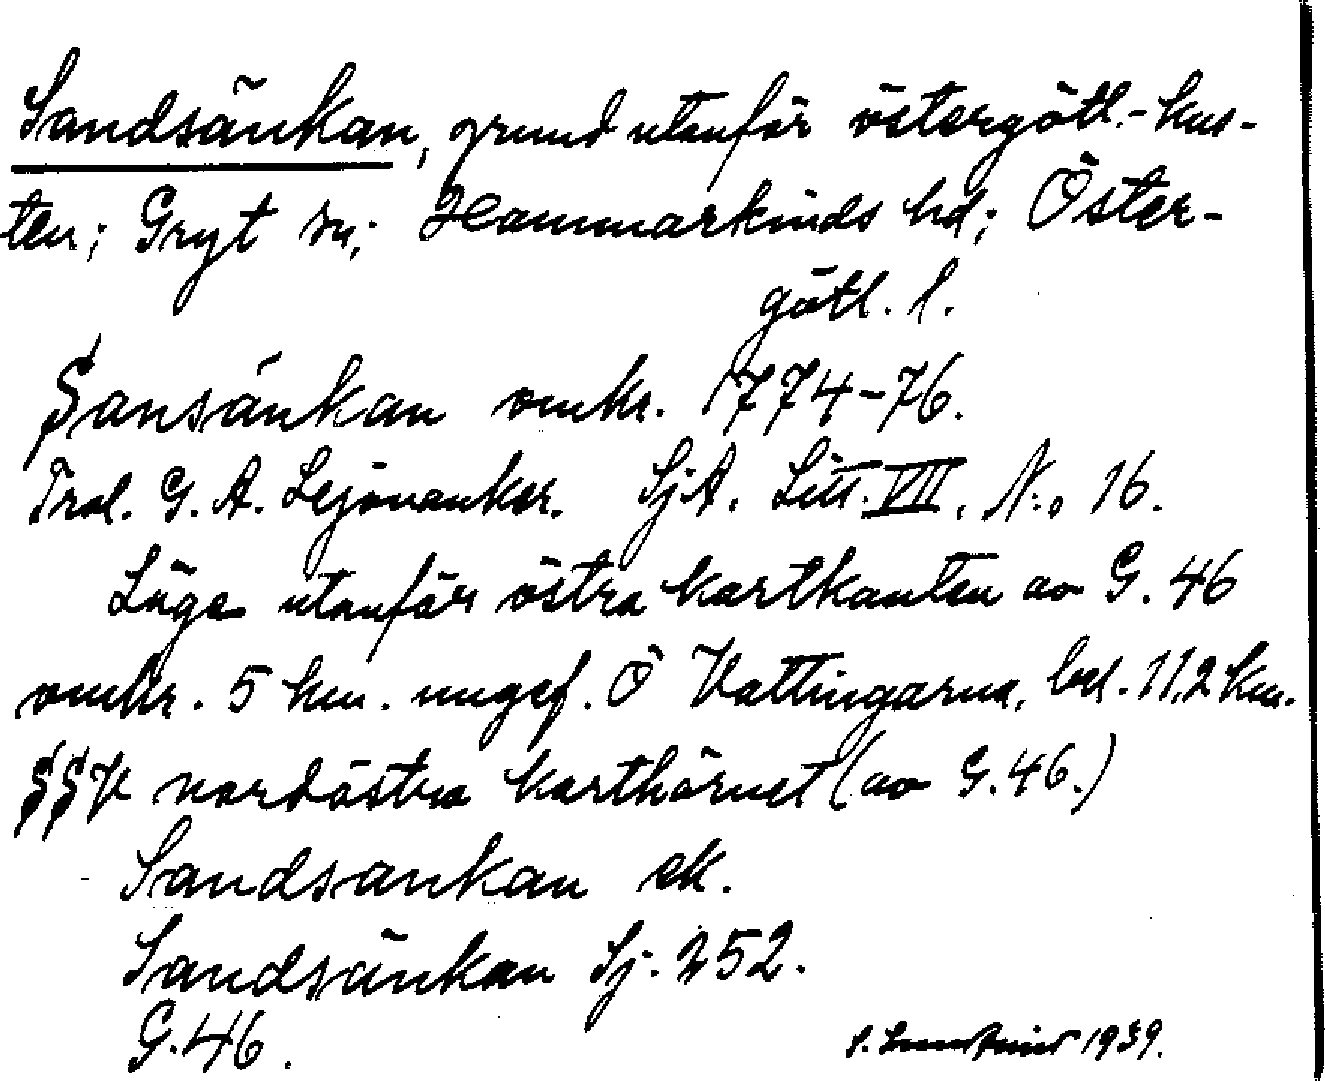 Sandsänkan, grund utanför östergötl.-kus-
ten; Gryt sn; Hammarkinds hd; Öster-
götl. l.
Sansänkan omkr. 1774-76.
Trol. G. A. Lejonanker. SjA. Litt. VII. No 16.
Läge utanför östra kartkanten av G. 46
omkr. 5 km. ungef. Ö Vattingarna, bel. 11,2 km.
SSV nordöstra karthörnet (av G. 46.)
Sandsankan ek.
Sandsänkan Sj. 252.
G. 46.
1939.